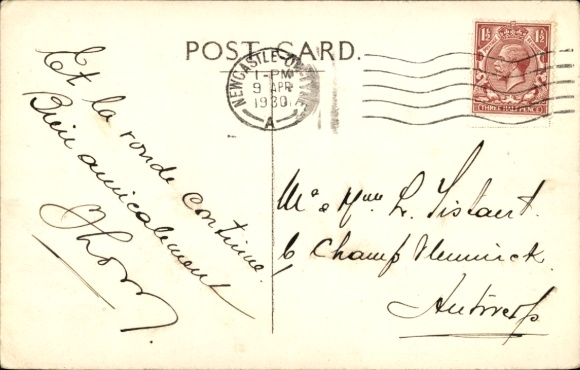 POST CARD.
NEWCASTLE-ON-TYNE
1-PM
9 APR
1930
A
1½ 1½
THREE HALF PENCE
Et la ronde continue.
Bien amicalement
Thom.
Mr & Mme L. Sistaert.
6 Champ Vleminck.
Antwerp